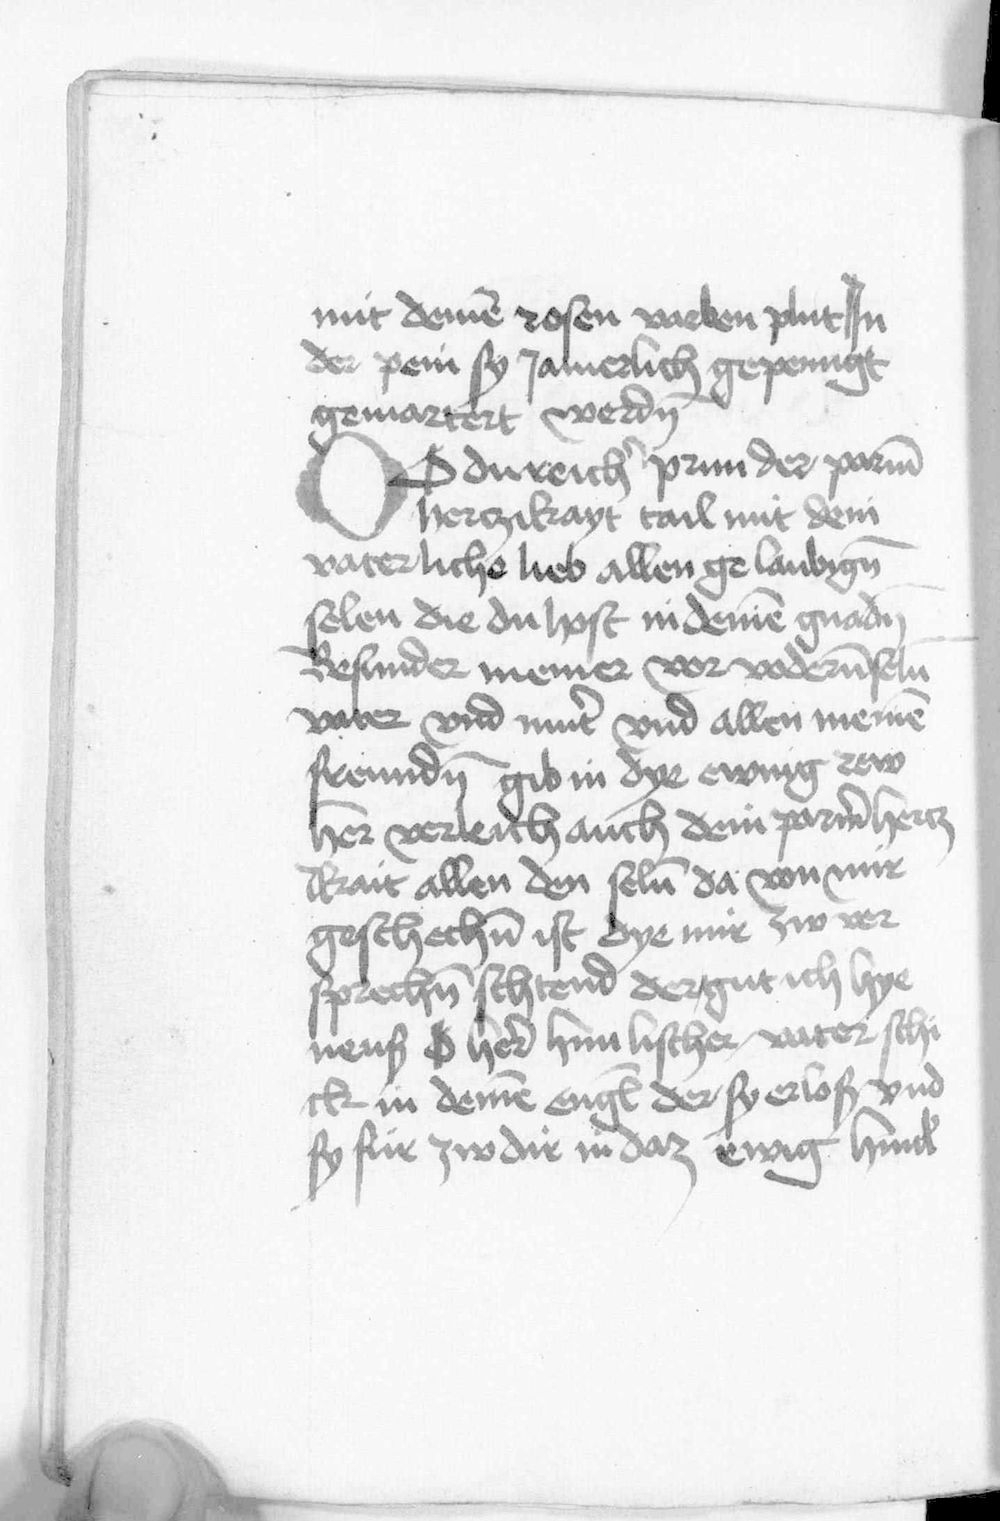 mit deinē rosen varben plut In
der pein sy Jamerlich gepeinigt
gemartert werdn̄
O du reichˀ prun der parm̄
hertzikayt tail mit dein
vaterliche lieb allen gelaubign̄
selen die du host in deinē gnadn̄
Besunder meiner vor vodern̄ seln̄
vater vnd mutˀ vnd allen meinē
freundn̄ gib in dye ewnig rew
her verleich auch dein parm̄hertz
ikait allen den seln̄ da von mir
geschechn̄ ist dye mir zw ver
sprechn̄ schtend der gut ich hye
neuß O her himlischer vater schi
ck in deinē engl̄ der sy erloß vnd
sy für zw dir in daz ewig himlˀ